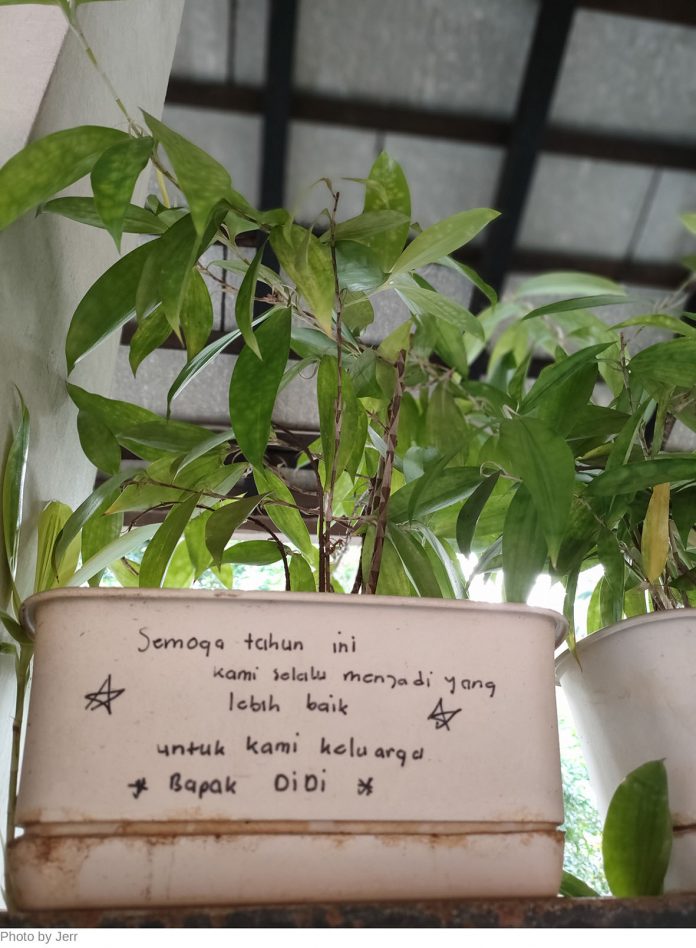 Semoga tahun ini
kami selalu menjadi yang
lebih baik
untuk kami keluarga
* Bapak DiDi *
Photo by Jerr